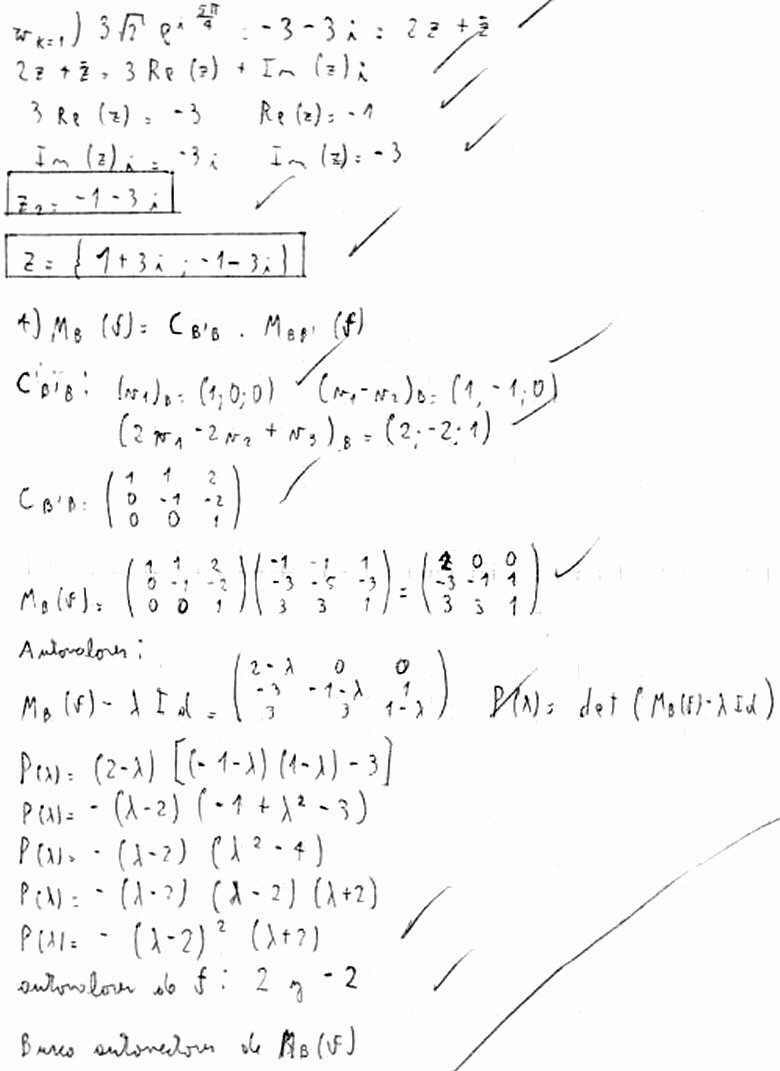 w k=1) 3√2 e^{i 5π/4} = -3-3i = 2z + z̄
2z + z̄ = 3 Re(z) + Im(z)i
3 Re(z) = -3 Re(z) = -1
Im(z)i = -3i Im(z) = -3
z₂ = -1-3i
z = { 1+3i ; -1-3i }
4) M_B(f) = C_{B'B} . M_{BB'}(f)
C_{B'B}: (v₁)_B = (1;0;0) (v₁-v₂)_B = (1,-1;0)
(2v₁ - 2v₂ + v₃)_B = (2;-2;1)
C_{B'B} = ( 1 1 2
0 -1 -2
0 0 1 )
M_B(f) = ( 1 1 2 ) ( -1 -1 1 ) = ( 2 0 0 )
( 0 -1 -2 ) ( -3 -5 -3 ) ( -3 -1 1 )
( 0 0 1 ) ( 3 3 1 ) ( 3 3 1 )
Autovalores:
M_B(f) - λ Id = ( 2-λ 0 0 ) P(λ) = det (M_B(f)-λ Id)
( -3 -1-λ 1 )
( 3 3 1-λ )
P(λ) = (2-λ) [(-1-λ) (1-λ) - 3]
P(λ) = - (λ-2) (-1 + λ² - 3)
P(λ) = - (λ-2) (λ² - 4)
P(λ) = - (λ-2) (λ-2) (λ+2)
P(λ) = - (λ-2)² (λ+2)
autovalores de f: 2 y -2
Busco autovectores de M_B(f)